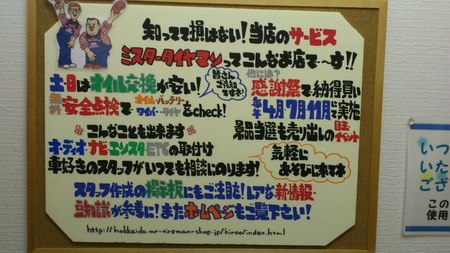 知ってて損はない!当店のサービス
ミスタータイヤマンってこんなお店で〜す!!
土・日はオイル交換が安い!
皆さんご存知ですか?
他には?
感謝祭で納得買い
無料安全点検でオイル・バッテリー
ワイパー・タイヤをcheck!
毎年4月7月11月で実施
景品当選も売り出しの目玉イベント
☆こんなことも出来ます
オーディオ ナビ エンスタ・ETCの取付け
車好きのスタッフがいつでも相談にのります!
気軽にあそびに来てネ
スタッフ作成の掲示板にもご注目!レアな新情報・
豆知識が参考に!またホームページもご覧下さい!
http://hokkaido.mr-tireman-shop.jp/hiroo/index.html
いつ
いた
ござ
この
使用